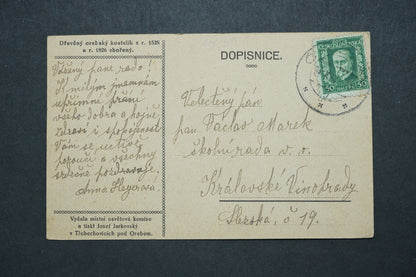 Dřevěný orebský kostelík z r. 1528
a r. 1826 zbořený.
Vážený pane rado!
K milým jmeninám
upřímné přání
všeho dobra a hojně
zdraví i spokojenosti
Vám se uctivě
poroučí a všechny
srdečně pozdravuje
Anna Hegrová
Vydala místní osvětová komise
a tiskl Josef Jarkovský
v Třebechovicích pod Orebem.
DOPISNICE.
Velectěný pán
pan Václav Marek
školní rada v. v.
Královské Vinohrady
Slezská, č 19.
50 50